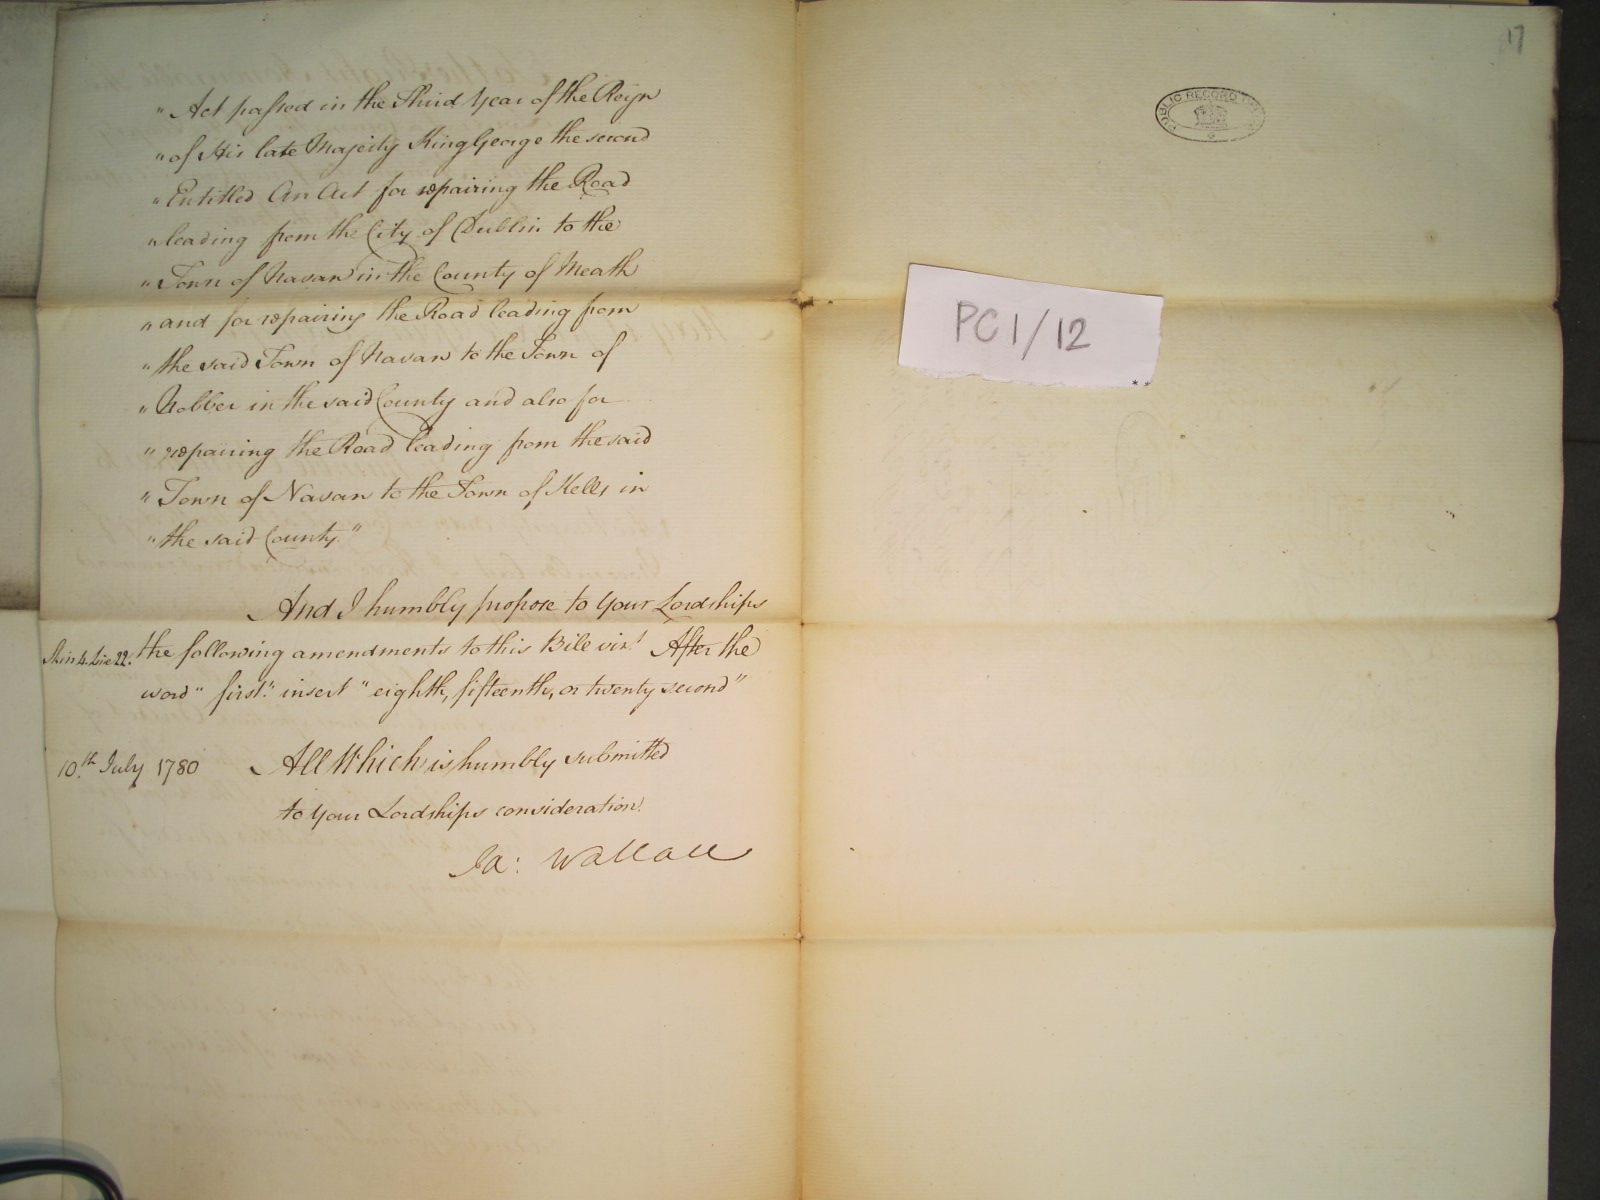 " Act passed in the Third Year of the Reign
" of His late Majesty King George the second
" Entitled An Act for repairing the Road
" leading from the City of Dublin to the
" Town of Navan in the County of Meath
" and for repairing the Road leading from
" the said Town of Navan to the Town of
" Nobber in the said County and also for
" repairing the Road leading from the said
" Town of Navan to the Town of Kells in
" the said County."
And I humbly propose to Your Lordships
Skin 4. Line 22. the following amendments to this Bill vizt. After the
word " first" insert " eighth, fifteenth, or twenty second"
10.th July 1780 All Which is humbly submitted
to Your Lordships consideration.
Ja: Wallace
17
PUBLIC RECORD
PC 1/12